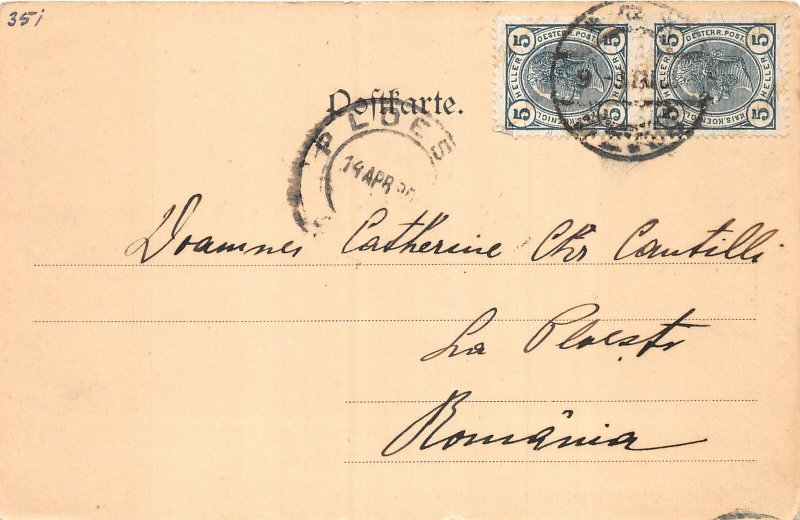 351
5 OESTERR. POST. 5
HELLER HELLER
5 KAIS. KOENIGL. 5
5 OESTERR. POST. 5
HELLER HELLER
5 KAIS. KOENIGL. 5
Postkarte.
PLOES
14 APR
Doamnei Catherine Chr Cantilli
La Ploesti
România